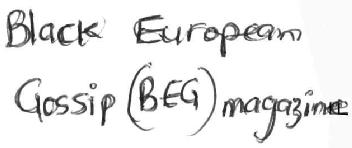 Black European
Gossip (BEG) magazine